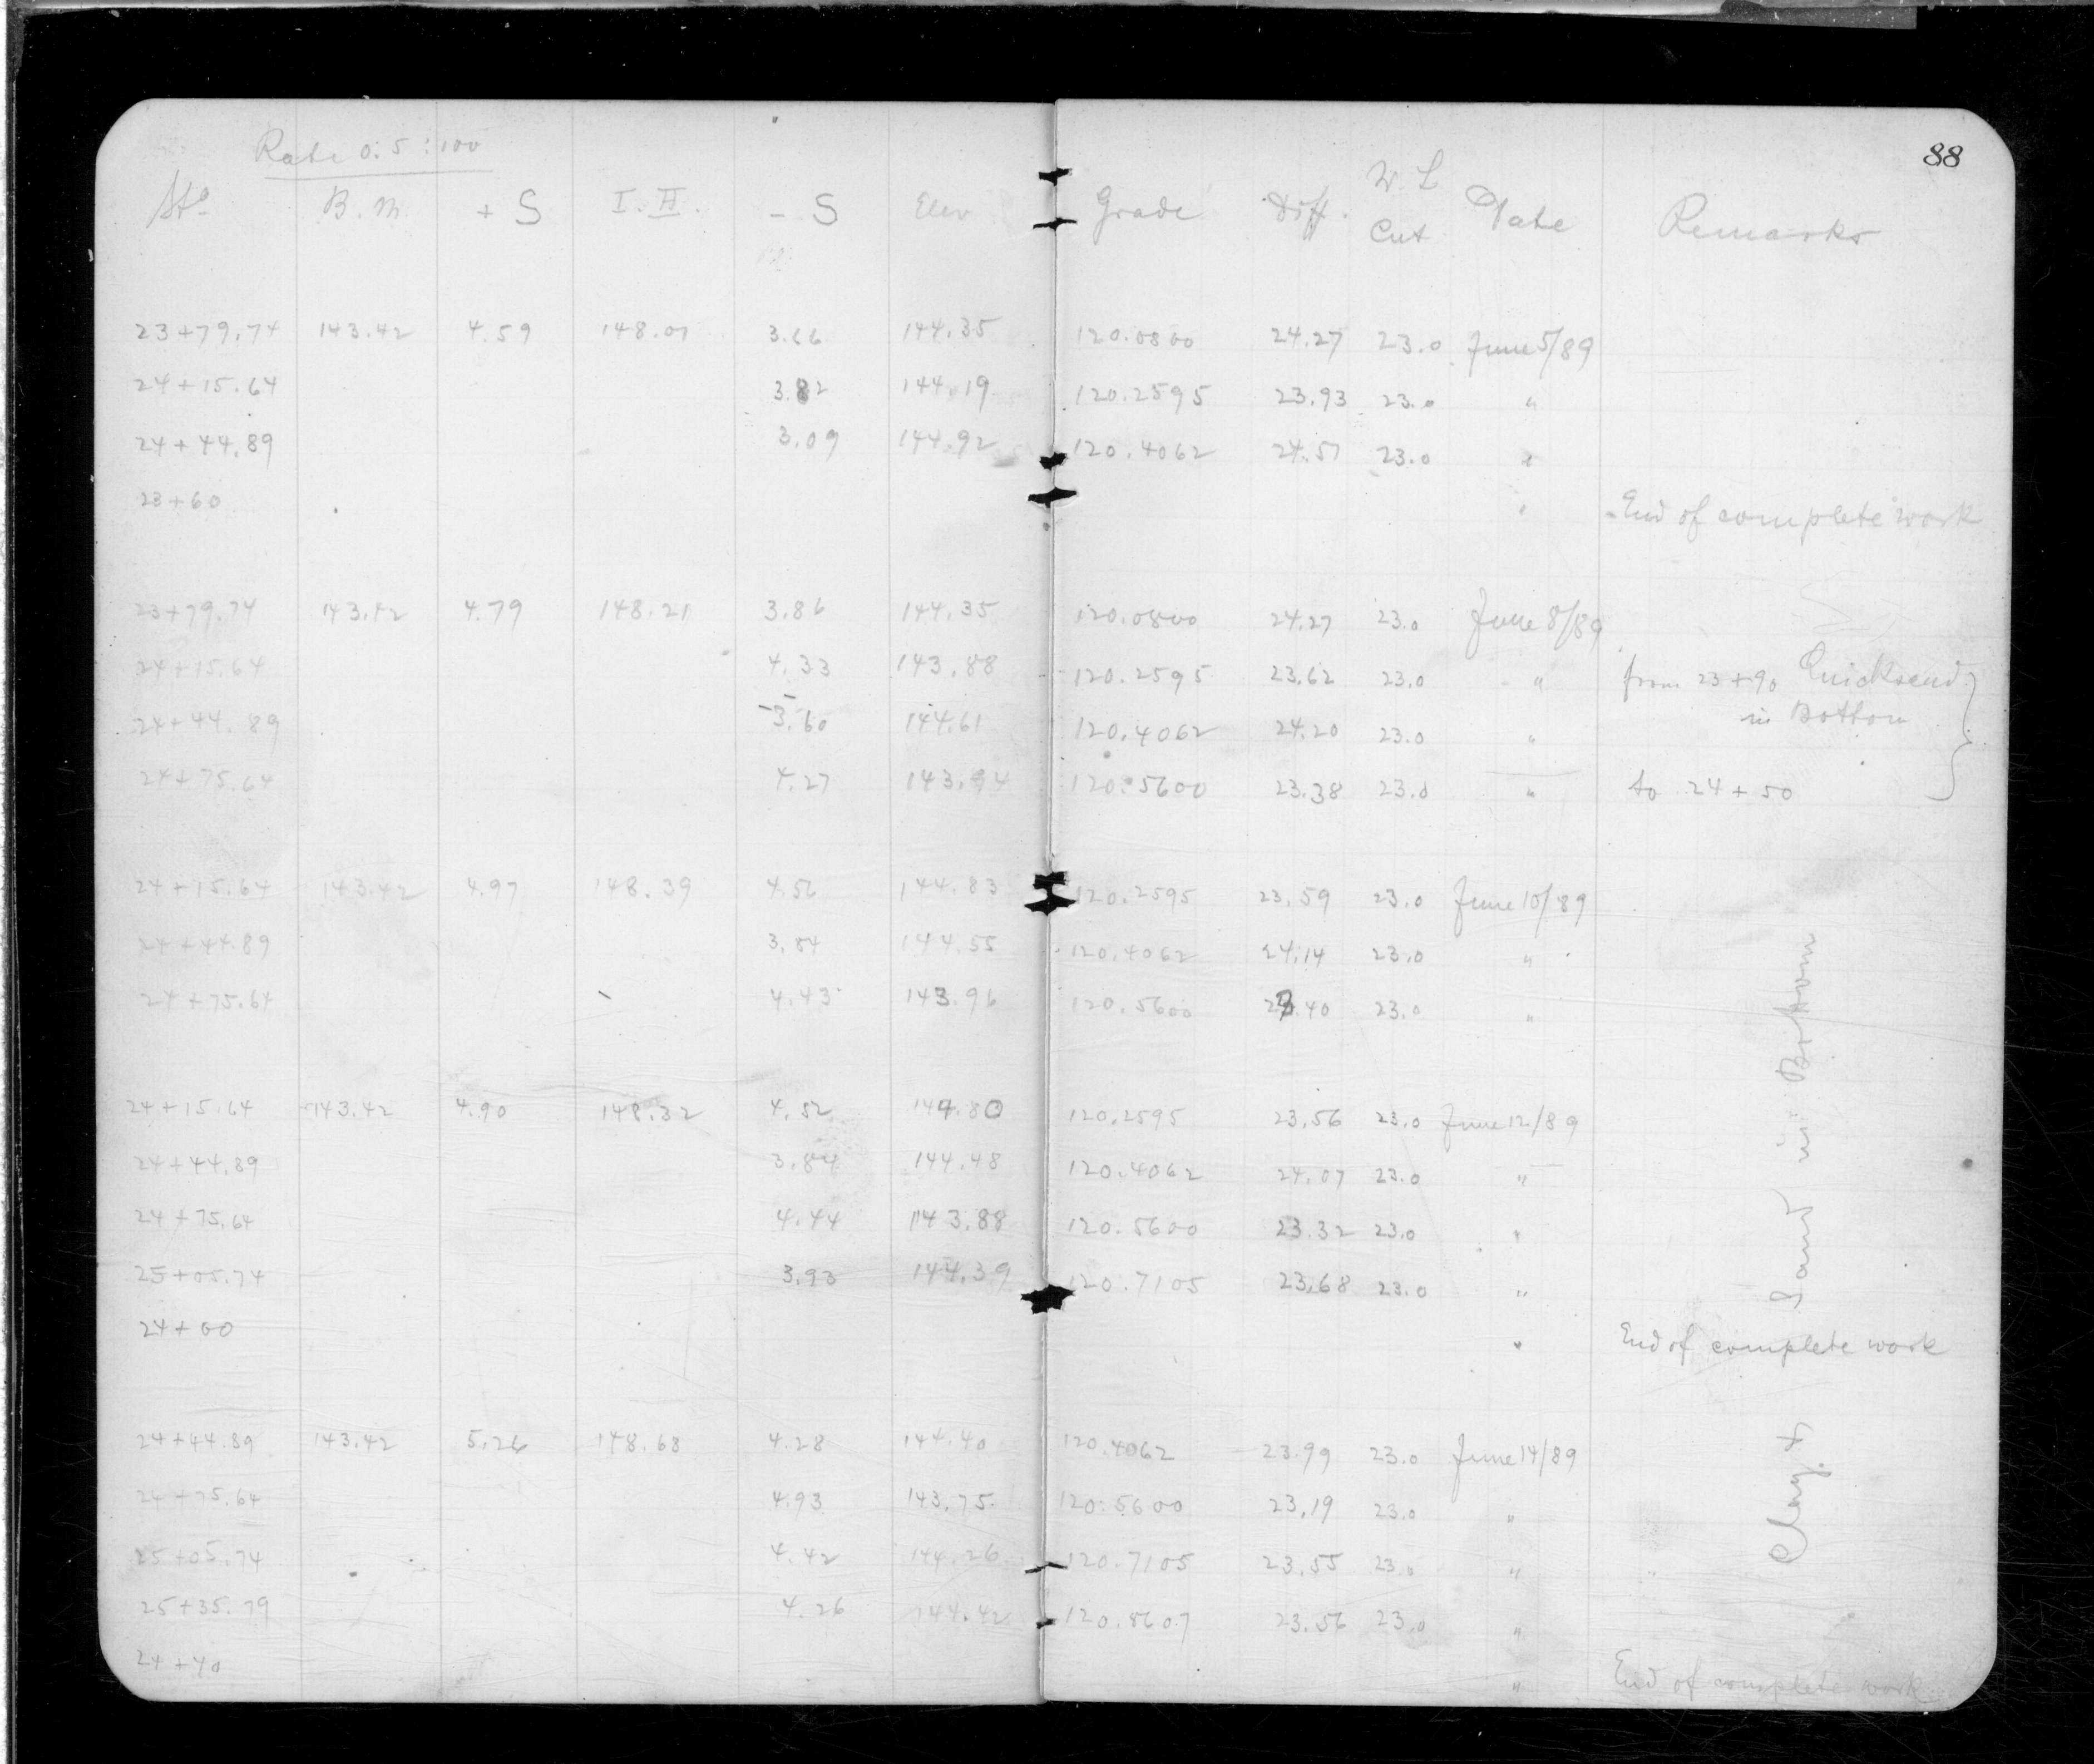 88
Rate 0.5 : 100
Sta B.M. + S I.H. - S Elev Grade Diff. W.L Cut Date Remarks
23+79.74 143.42 4.59 148.01 3.66 144.35 120.0800 24.27 23.0 June 5/89
24+15.64 3.82 144.19 120.2595 23.93 23.0 "
24+44.89 3.09 144.92 120.4062 24.51 23.0 "
23+60 " End of complete work
23+79.74 143.42 4.79 148.21 3.86 144.35 120.0800 24.27 23.0 June 8/89
24+15.64 4.33 143.88 120.2595 23.62 23.0 " from 23+90 Quicksand
in Bottom
24+44.89 3.60 144.61 120.4062 24.20 23.0 "
24+75.64 4.27 143.94 120.5600 23.38 23.0 " to 24+50
24+15.64 143.42 4.97 148.39 4.56 144.83 120.2595 23.59 23.0 June 10/89
24+44.89 3.84 144.55 120.4062 24.14 23.0 "
24+75.64 4.43 143.96 120.5600 23.40 23.0 "
24+15.64 143.42 4.90 148.32 4.52 144.80 120.2595 23.56 23.0 June 12/89
24+44.89 3.84 144.48 120.4062 24.07 23.0 "
24+75.64 4.44 143.88 120.5600 23.32 23.0 "
25+05.74 3.93 144.39 120.7105 23.68 23.0 "
24+00 " End of complete work
24+44.89 143.42 5.26 148.68 4.28 144.40 120.4062 23.99 23.0 June 14/89
24+75.64 4.93 143.75 120.5600 23.19 23.0 "
25+05.74 4.42 144.26 120.7105 23.55 23.0 "
25+35.79 4.26 144.42 120.8607 23.56 23.0 "
24+40 " End of complete work
Clay & Sand in Bottom